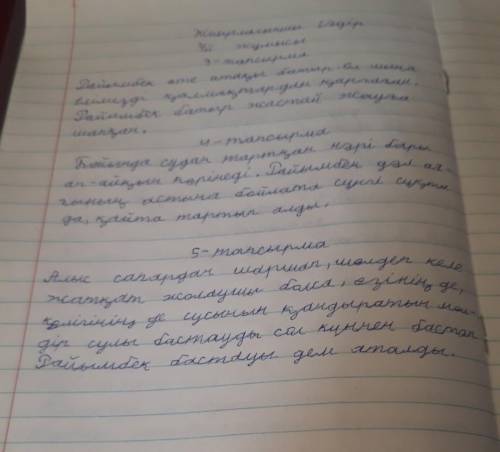 Жиырмасыншы сәуір
Үй жұмысы
3-тапсырма
Райымбек өте атақты батыр. Ол
елімізді қалмақтардан қорғаған.
Райымбек батыр жастай жауға
шапқан.
4-тапсырма
Бойында судан тартқан нәрі бары
ап-айқын көрінеді. Райымбек дәл ая-
ғының астына бойлата сүңгі сұқты
да, қайта тартып алды.
5-тапсырма
Алыс сапардан шаршап, шөлдеп келе
жатқат жолаушы болса, өзінің де,
көлігінің де сусынын қандыратын мөл-
дір сулы бастауды сол күннен бастап
Райымбек бастауы деп аталды.